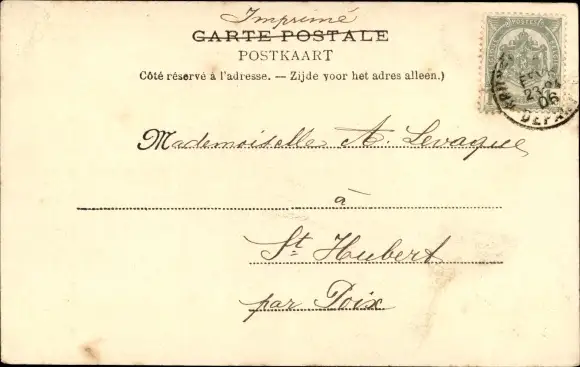 Imprimé
CARTE POSTALE
POSTKAART
Côté réservé à l'adresse. — Zijde voor het adres alleen.)
Mademoiselle A. Levaque
à
St Hubert
par Poix
23
06
DEPA